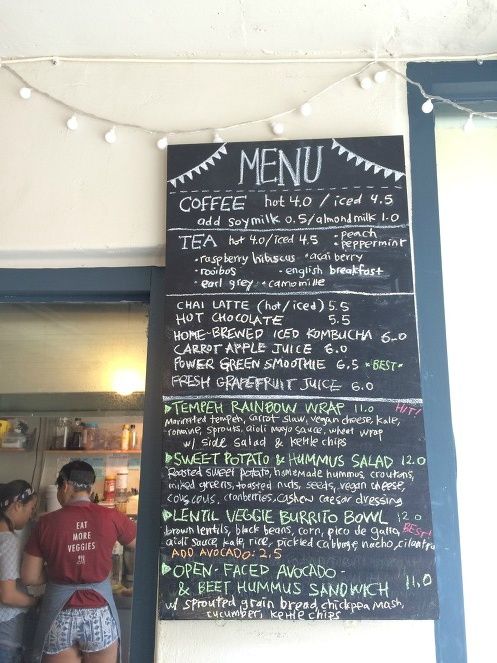 MENU
COFFEE hot 4.0 / iced 4.5
add soymilk 0.5/almondmilk 1.0
TEA hot 4.0/iced 4.5 • peach
• peppermint
• raspberry hibiscus • acai berry
• rooibos • english breakfast
• earl grey • camomille
CHAI LATTE (hot/iced) 5.5
HOT CHOCOLATE 5.5
HOME-BREWED ICED KOMBUCHA 6.0
CARROT APPLE JUICE 6.0
POWER GREEN SMOOTHIE 6.5 *BEST*
FRESH GRAPEFRUIT JUICE 6.0
TEMPEH RAINBOW WRAP 11.0 HIT!
Marinated tempeh, carrot slaw, vegan cheese, kale,
romaine, sprouts, aioli mayo sauce, wheat wrap
w/ side salad & kettle chips
SWEET POTATO & HUMMUS SALAD 12.0
Roasted sweet potato, homemade hummus, croutons,
mixed greens, toasted nuts, seeds, vegan cheese,
couscous, cranberries, cashew caesar dressing
LENTIL VEGGIE BURRITO BOWL 12.0
brown lentils, black beans, corn, pico de gallo, BEST!
aioli sauce, kale, rice, pickled cabbage, nacho, cilantro
ADD AVOCADO: 2.5
OPEN-FACED AVOCADO
& BEET HUMMUS SANDWICH 11.0
w/ sprouted grain bread, chickpea mash,
cucumber, kettle chips
EAT
MORE
VEGGIES